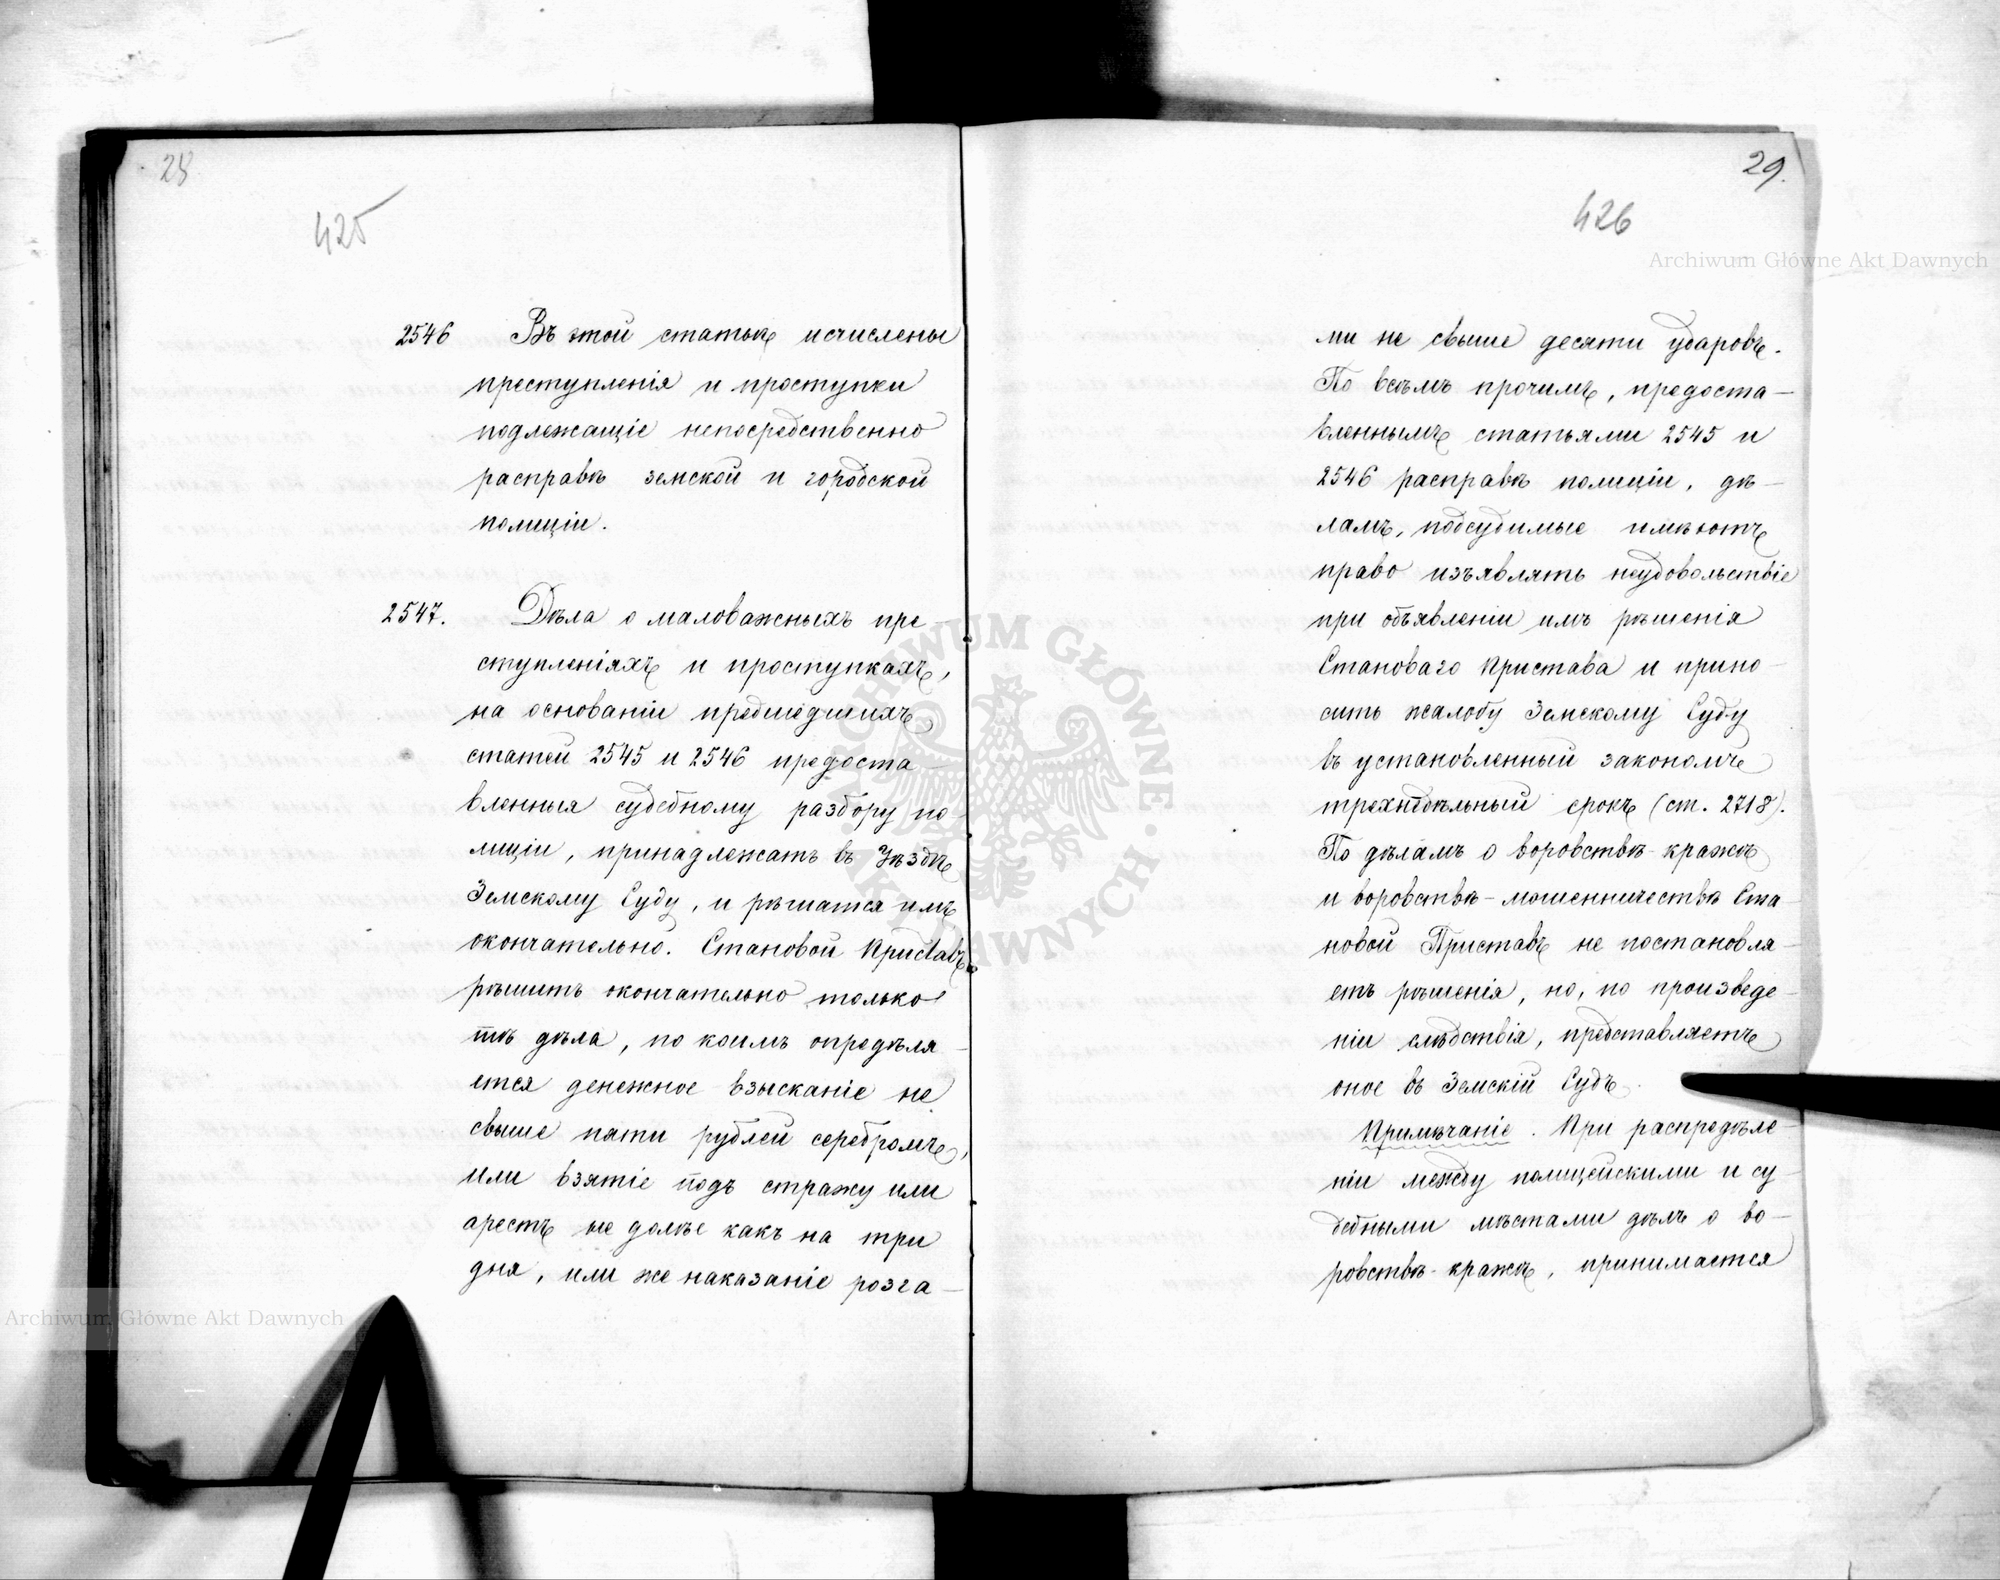 28
425
2546 Въ этой статьѣ исчислены
преступленія и проступки
подлежащіе непосредственно
расправѣ земской и городской
полиціи.
2547. Дѣла о маловажныхъ пре-
ступленіяхъ и проступкахъ,
на основаніи предшедшихъ
статей 2545 и 2546 предоста-
вленныя судебному разбору по-
лиціи, принадлежатъ въ Уѣздѣ
Земскому Суду, и рѣшатся имъ
окончательно. Становой Приставъ
рѣшитъ окончательно только
тѣ дѣла, по коимъ опредѣля-
ется денежное взысканіе не
свыше пяти рублей серебромъ,
или взятіе подъ стражу или
арестъ не долѣе какъ на три
дня, или же наказаніе розга-
29.
426
ми не свыше десяти ударовъ.
По всѣмъ прочимъ, предоста-
вленнымъ статьями 2545 и
2546 расправѣ полиціи, дѣ-
ламъ, подсудимые имѣютъ
право изъявлять неудовольствіе
при объявленіи имъ рѣшенія
Становаго Пристава и прино-
сить жалобу Земскому Суду
въ установленный закономъ
трехнедѣльный срокъ (ст. 2718).
По дѣламъ о воровствѣ-кражѣ
и воровствѣ-мошенничествѣ Ста-
новой Приставъ не постановля-
етъ рѣшенія, но, по произведе-
ніи слѣдствія, представляетъ
оное въ Земскій Судъ.
Примѣчаніе. При распредѣле-
ніи между полицейскими и су-
дебными мѣстами дѣлъ о во-
ровствѣ-кражѣ, принимается
Archiwum Główne Akt Dawnych
Archiwum Główne Akt Dawnych
ARCHIWUM GŁÓWNE AKT DAWNYCH